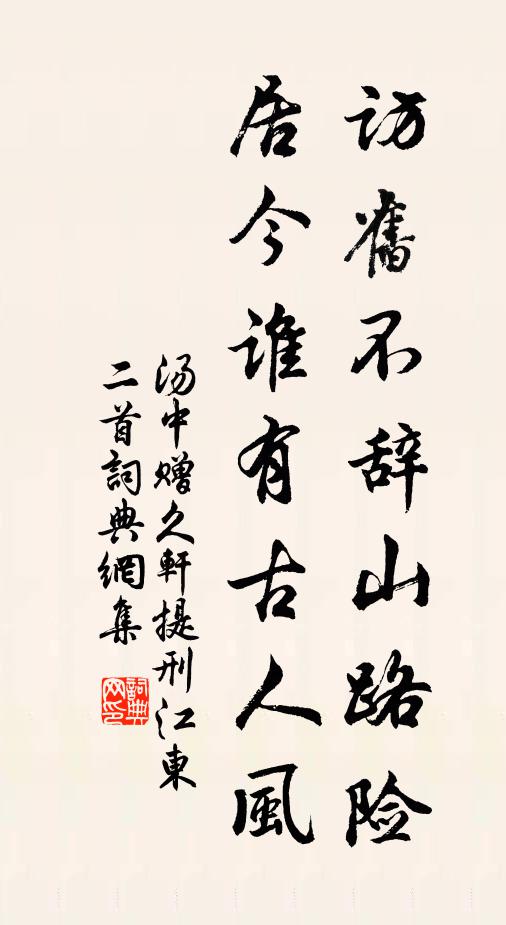 访舊不辞山路险
居今谁有古人風
汤中赠久軒提刑江東
二首詞典網集
詞典
网印